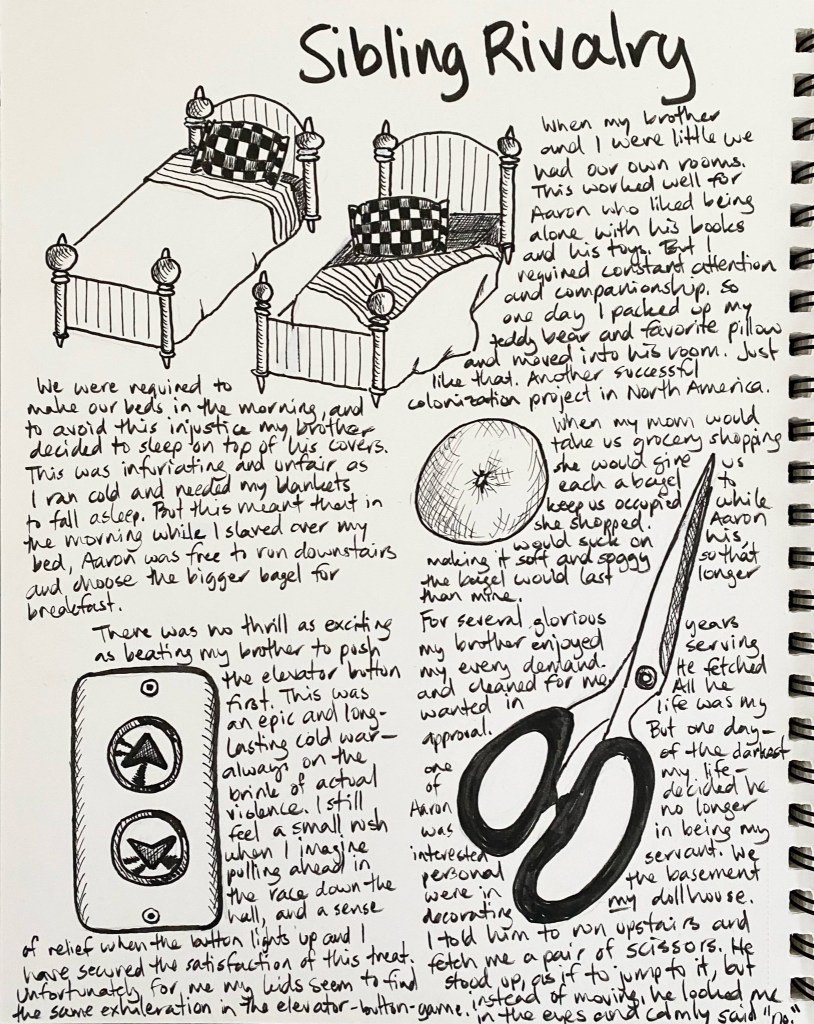 Sibling Rivalry
When my brother
and I were little we
had our own rooms.
This worked well for
Aaron who liked being
alone with his books
and his toys. But I
required constant attention
and companionship. So
one day I packed up my
teddy bear and favorite pillow
and moved into his room. Just
like that. Another successful
colonization project in North America.
We were required to
make our beds in the morning, and
to avoid this injustice my brother
decided to sleep on top of his covers.
This was infuriating and unfair as
I ran cold and needed my blankets
to fall asleep. But this meant that in
the morning while I slaved over my
bed, Aaron was free to run downstairs
and choose the bigger bagel for
breakfast.
When my mom would
take us grocery shopping
she would give us
each a bagel to
keep us occupied while
she shopped. Aaron
would suck on his,
making it soft and soggy so that
the bagel would last longer
than mine.
There was no thrill as exciting
as beating my brother to push
the elevator button
first. This was
an epic and long-
lasting cold war—
always on the
brink of actual
violence. I still
feel a small rush
when I imagine
pulling ahead in
the race down the
hall, and a sense
of relief when the button lights up and I
have secured the satisfaction of this treat.
Unfortunately for me my kids seem to find
the same exhileration in the elevator-button-game.
For several glorious years
my brother enjoyed serving
my every demand. He fetched
and cleaned for me. All he
wanted in life was my
approval. But one day—
one of the darkest
of my life—
Aaron decided he
was no longer
interested in being my
personal servant. We
were in the basement
decorating my dollhouse.
I told him to run upstairs and
fetch me a pair of scissors. He
stood up, as if to jump to it, but
instead of moving, he looked me
in the eyes and calmly said "no."